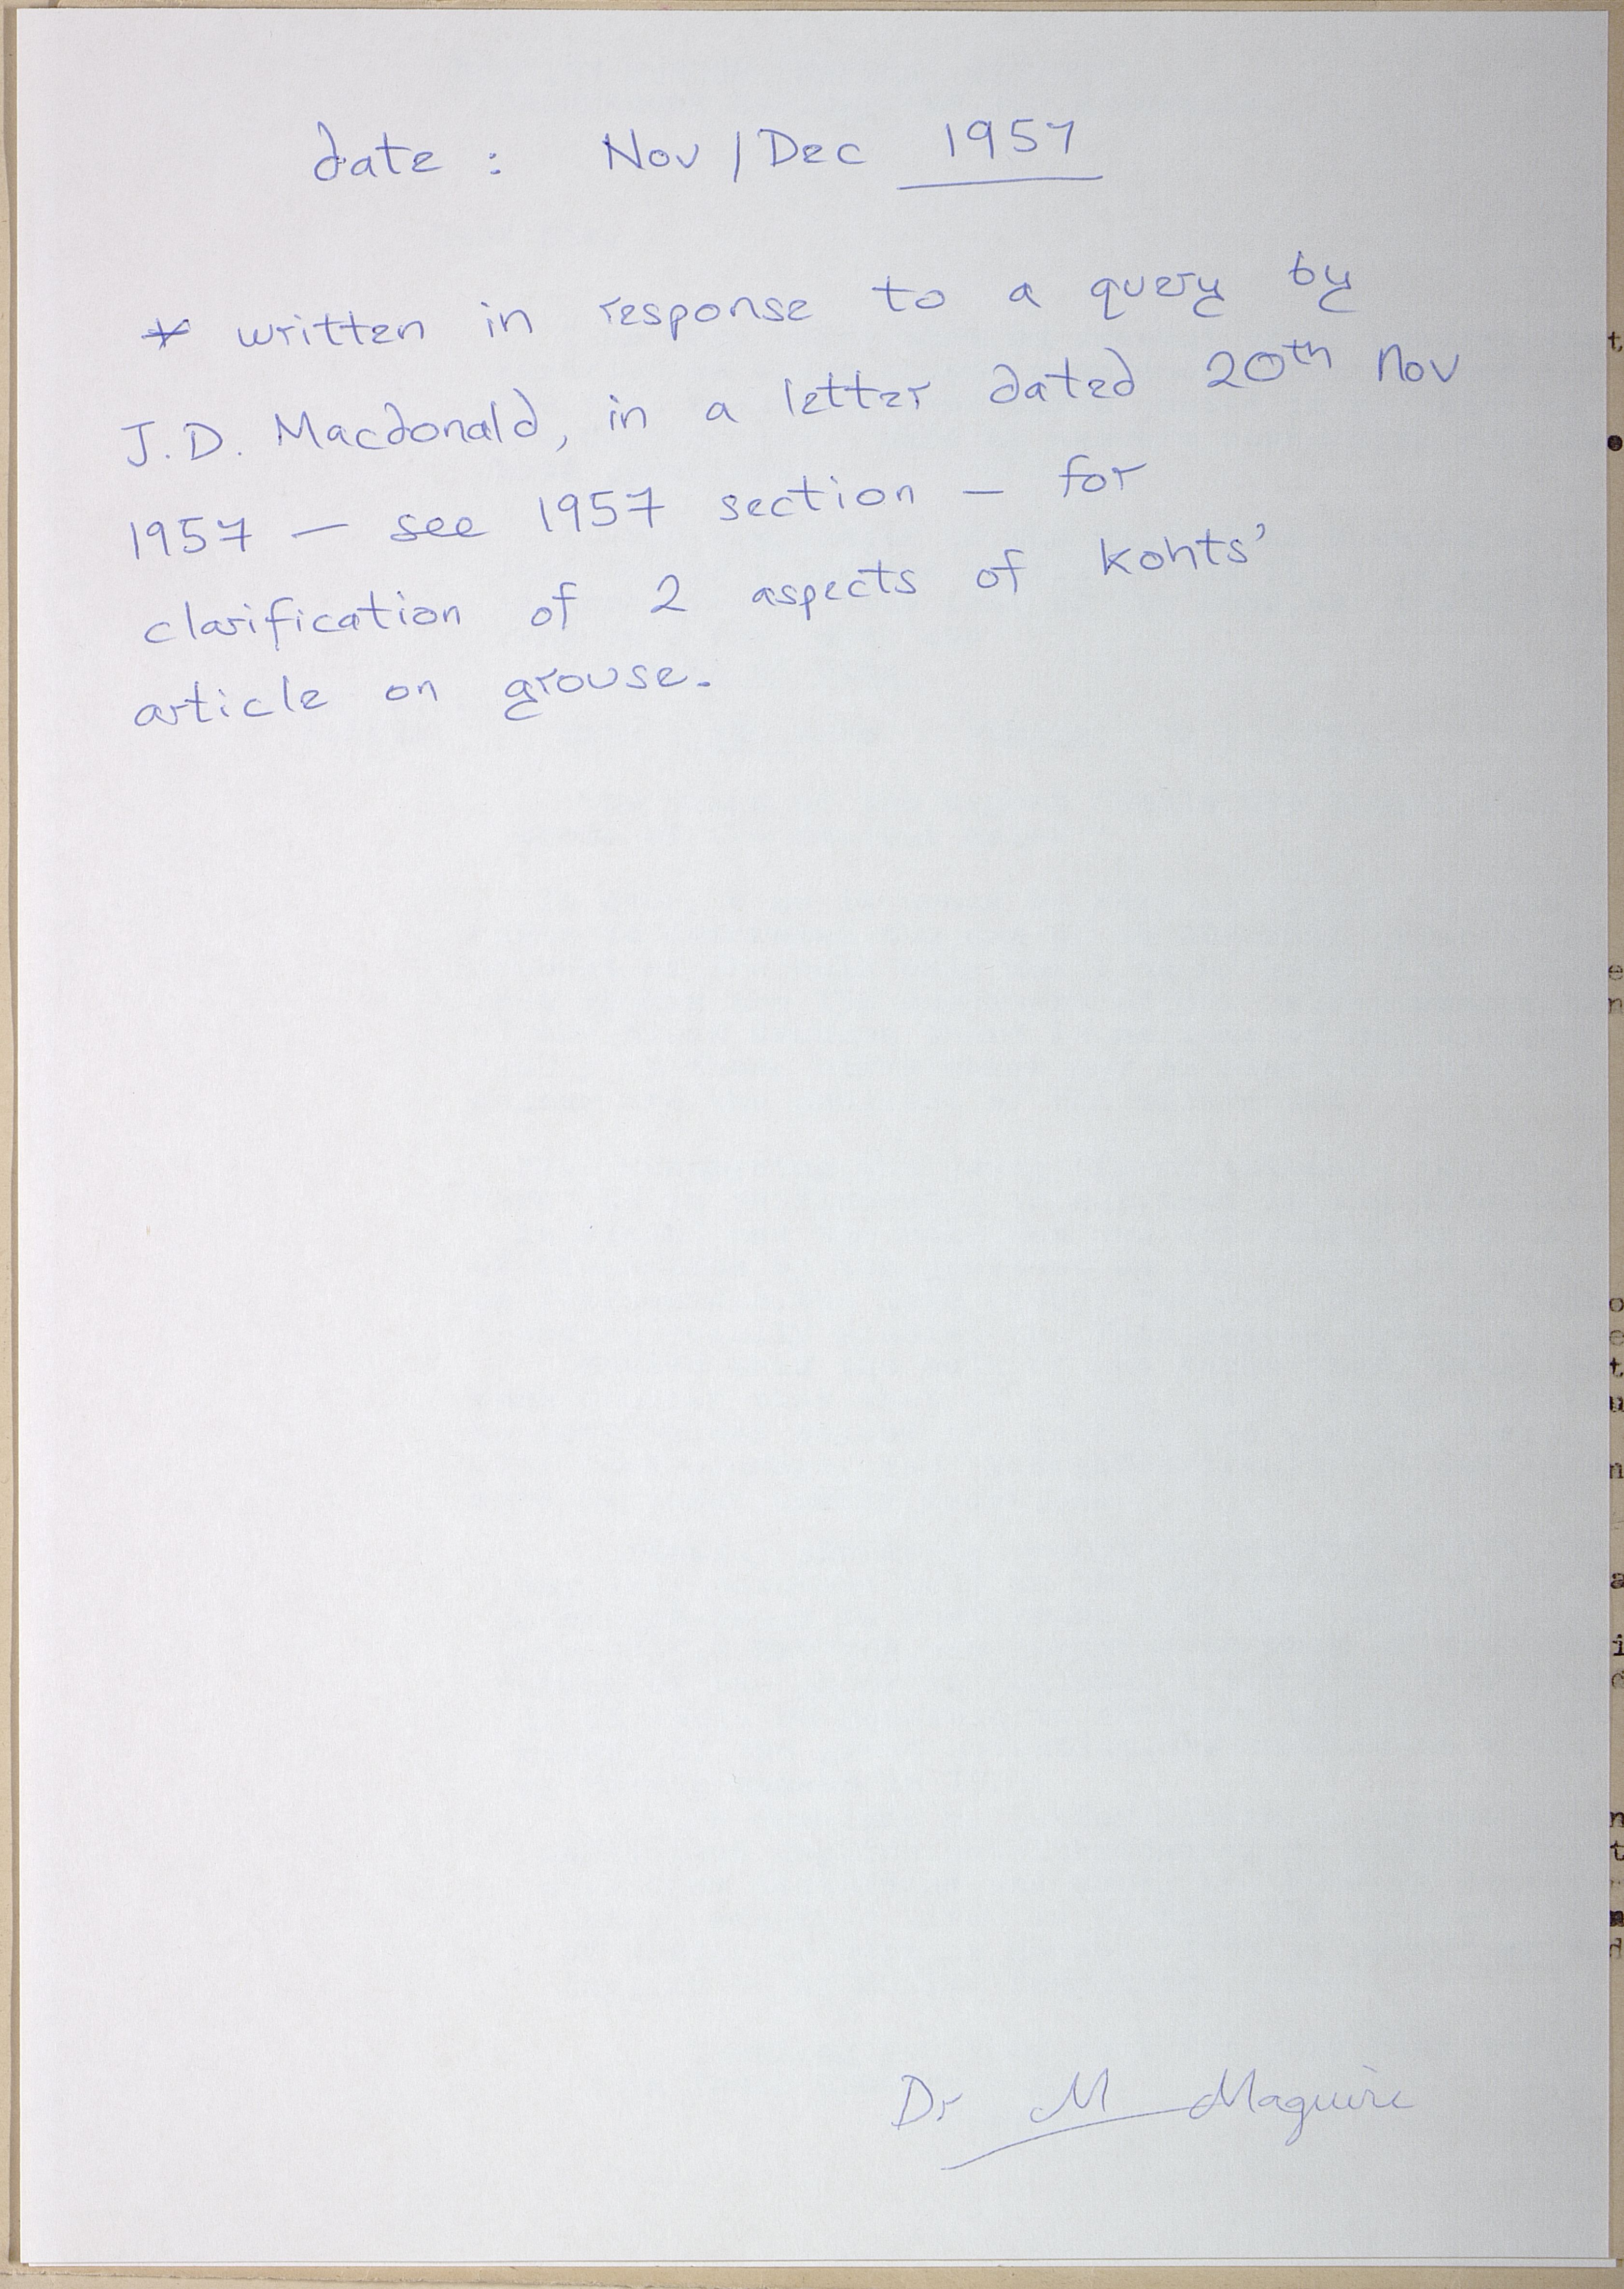 date : Nov / Dec 1957
* written in response to a query by
J.D. Macdonald, in a letter dated 20th Nov
1957 — see 1957 section — for
clarification of 2 aspects of Kohts'
article on grouse.
Dr M Maguire